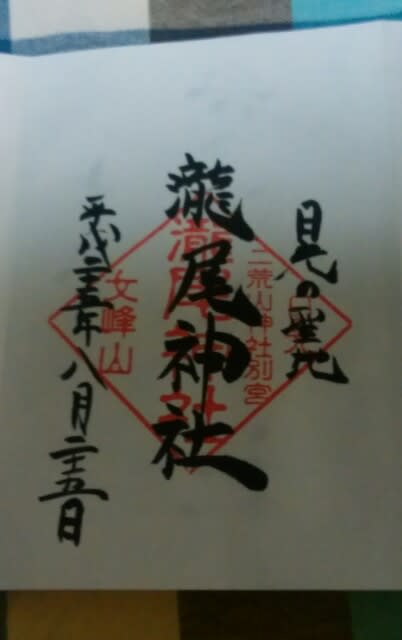 日光の聖地
二荒山神社別宮
瀧尾神社
瀧尾神社
女峰山
平成二十五年八月二十五日